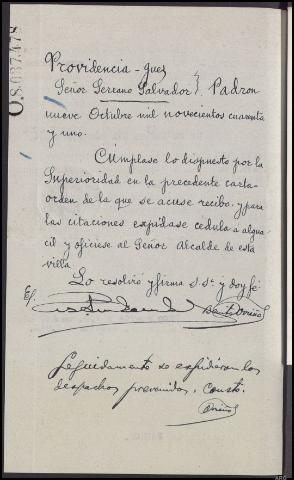 O.8.037.478
Providencia - juez
Señor Serrano Salvador } Padron
nueve Octubre mil novecientos cuarenta
y uno.
Cúmplase lo dispuesto por la
Superioridad en la precedente carta-
orden de la que se acuse recibo, y para
las citaciones expídase cedula a algua-
cil y ofíciese al Señor Alcalde de esta
villa.
Lo resolvió y firma S.Sª y doy fé
E/.
Seguidamente se expidieron los
despachos prevenidos. Consto.